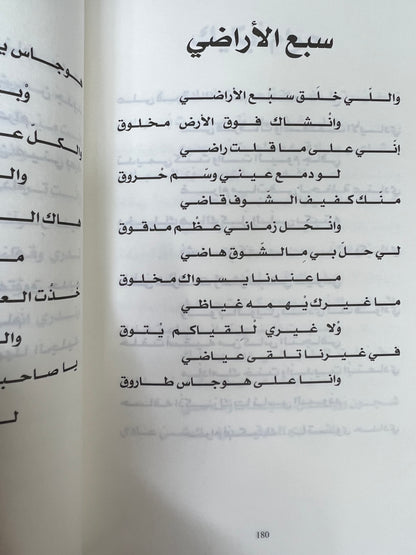 سبع الأراضي
واللّي خلق سبْع الأراضي
وانْشاك فوق الأرض مخلوق
إنّي على ما قلت راضي
لو دمع عيني وسْم حْروق
منّك كفيف الشوف قاضي
وانْحل زماني عظْم مدقوق
لي حلّ بي مِالشّوق هاضي
ما عندنا يسواك مخلوق
ما غيرك يْهمه غياظي
وْلا غيري لْلقياكم يْتوق
في غيرنا تلقى عياضي
وانا على هوجاس طاروق
180
هوجاس
والكلّ
هاك
خذْت
يا صاحب